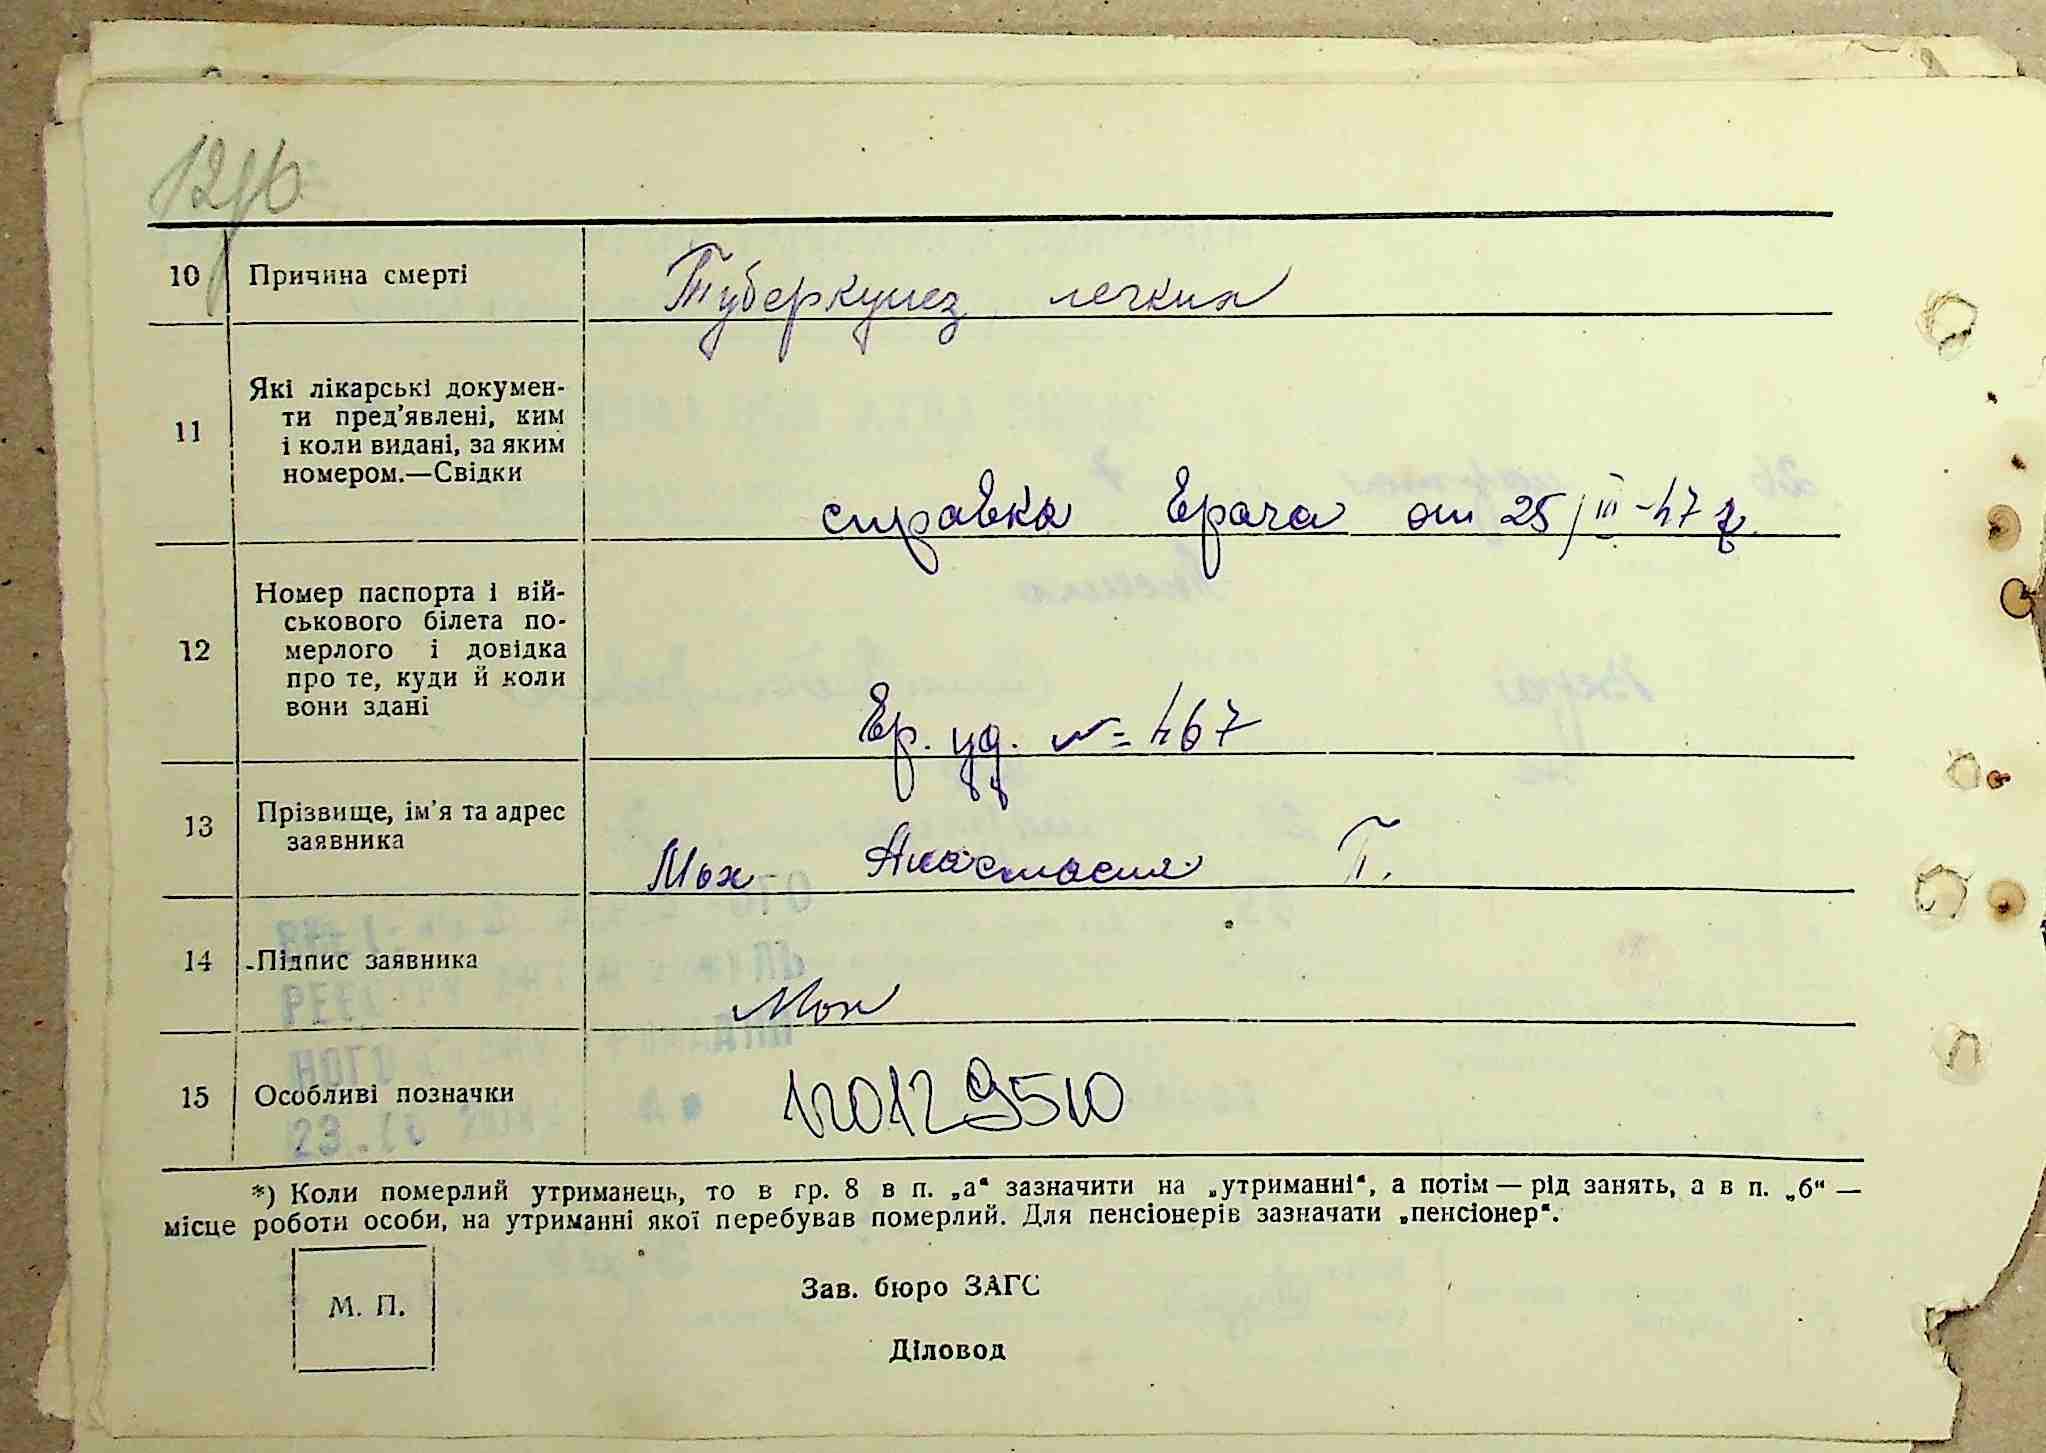 10
Причина смерті
Туберкулез легких
11
Які лікарські докумен-
ти пред'явлені, ким
і коли видані, за яким
номером.—Свідки
справка врача от 25/III-47 г.
12
Номер паспорта і вій-
ськового білета по-
мерлого і довідка
про те, куди й коли
вони здані
Вр. уд. № 467
13
Прізвище, ім'я та адрес
заявника
Мох Анастасия Т.
14
Підпис заявника
Мох
15
Особливі позначки
120129510
*) Коли померлий утриманець, то в гр. 8 в п. „а“ зазначити на „утриманні“, а потім — рід занять, а в п. „б“ —
місце роботи особи, на утриманні якої перебував померлий. Для пенсіонерів зазначати „пенсіонер“.
М. П.
Зав. бюро ЗАГС
Діловод